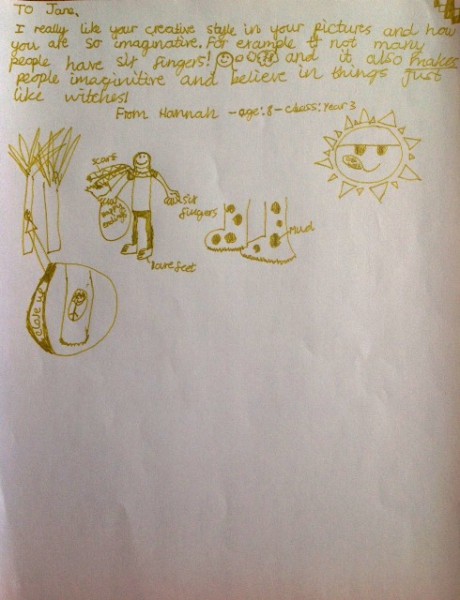 To Jane,
I really like your creative style in your pictures and how
you are so imaginative. For example not many
people have six fingers! and it also makes
people imaginitive and believe in things just
like witches!
From Hannah - age: 8 - class: Year 3
scarf
six
fingers
Mud
bare feet
close up